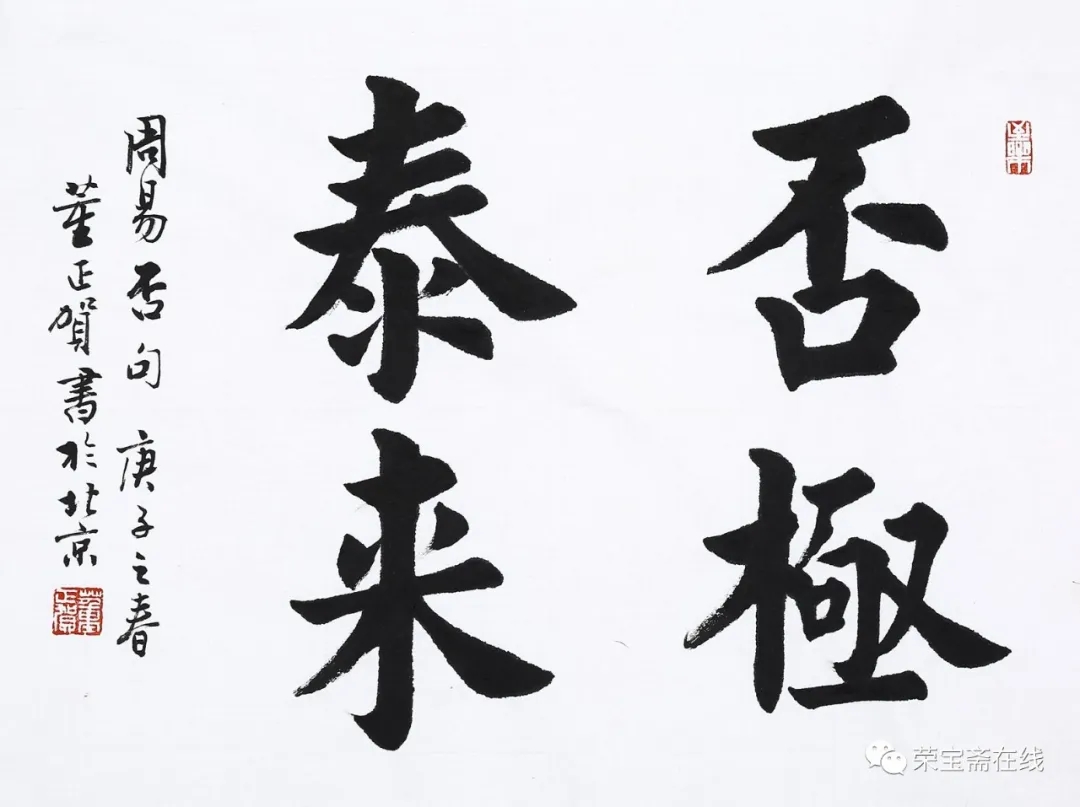 否極
泰来
周易否句 庚子之春
董正賀書於北京
董正賀
荣宝斋在线